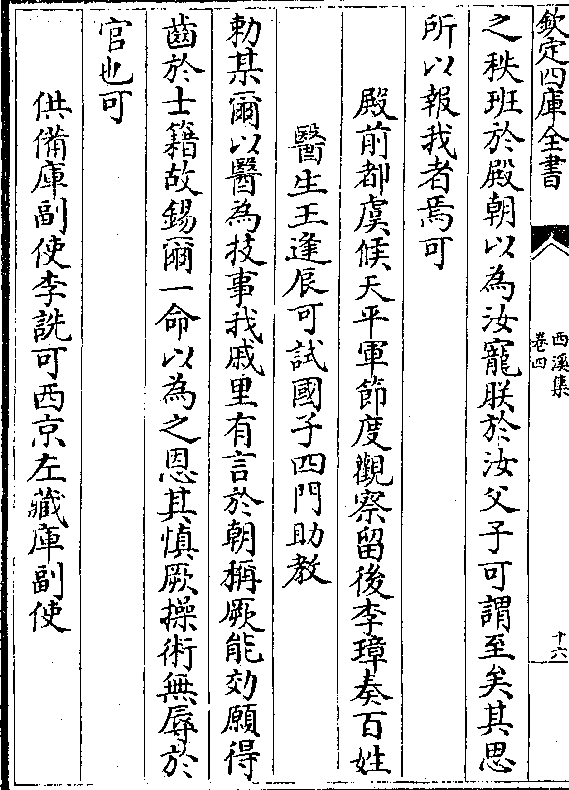 欽定四庫全書
西溪集
卷四
十六
之秩班於殿朝以為汝寵朕於汝父子可謂至矣其思
所以報我者焉可
殿前都虞候天平軍節度觀察留後李璋奏百姓
醫生王逢辰可試國子四門助教
勅某爾以醫為技事我戚里有言於朝稱厥能効願得
齒於士籍故錫爾一命以為之恩其慎厥操術無辱於
官也可
供備庫副使李詵可西京左藏庫副使